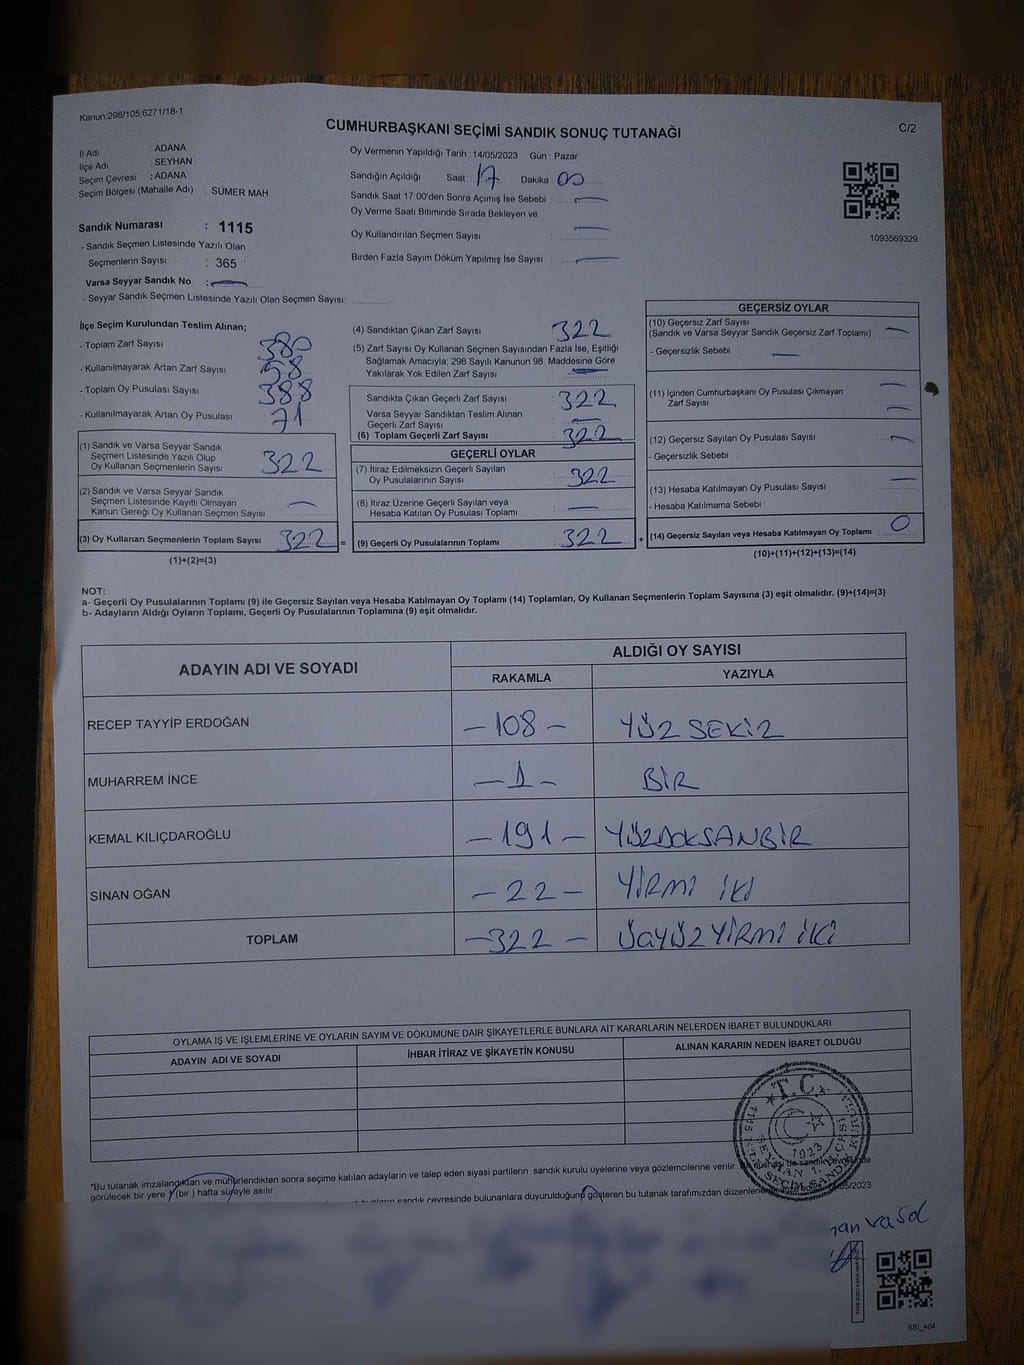 Kanun.298/105,6271/18-1
CUMHURBAŞKANI SEÇİMİ SANDIK SONUÇ TUTANAĞI
C/2
İl Adı : ADANA
İlçe Adı : SEYHAN
Seçim Çevresi : ADANA
Seçim Bölgesi (Mahalle Adı) : SÜMER MAH
Sandık Numarası : 1115
- Sandık Seçmen Listesinde Yazılı Olan
Seçmenlerin Sayısı : 365
Varsa Seyyar Sandık No :
- Seyyar Sandık Seçmen Listesinde Yazılı Olan Seçmen Sayısı:
Oy Vermenin Yapıldığı Tarih : 14/05/2023 Gün : Pazar
Sandığın Açıldığı Saat : 17 Dakika : 00
Sandık Saat 17:00'den Sonra Açımış İse Sebebi :
Oy Verme Saati Bitiminde Sırada Bekleyen ve
Oy Kullandırılan Seçmen Sayısı :
Birden Fazla Sayım Döküm Yapılmış İse Sayısı :
1093569329
İlçe Seçim Kurulundan Teslim Alınan;
- Toplam Zarf Sayısı : 380
- Kullanılmayarak Artan Zarf Sayısı : 58
- Toplam Oy Pusulası Sayısı : 388
- Kullanılmayarak Artan Oy Pusulası : 71
(1) Sandık ve Varsa Seyyar Sandık
Seçmen Listesinde Yazılı Olup
Oy Kullanan Seçmenlerin Sayısı : 322
(2) Sandık ve Varsa Seyyar Sandık
Seçmen Listesinde Kayıtlı Olmayan
Kanun Gereği Oy Kullanan Seçmen Sayısı
(3) Oy Kullanan Seçmenlerin Toplam Sayısı : 322 =
(1)+(2)=(3)
(4) Sandıktan Çıkan Zarf Sayısı : 322
(5) Zarf Sayısı Oy Kullanan Seçmen Sayısından Fazla İse, Eşitliği
Sağlamak Amacıyla; 298 Sayılı Kanunun 98. Maddesine Göre
Yakılarak Yok Edilen Zarf Sayısı :
Sandıkta Çıkan Geçerli Zarf Sayısı : 322
Varsa Seyyar Sandıktan Teslim Alınan
Geçerli Zarf Sayısı :
(6) Toplam Geçerli Zarf Sayısı : 322
GEÇERLİ OYLAR
(7) İtiraz Edilmeksizin Geçerli Sayılan
Oy Pusulalarının Sayısı : 322
(8) İtiraz Üzerine Geçerli Sayılan veya
Hesaba Katılan Oy Pusulası Toplamı :
(9) Geçerli Oy Pusulalarının Toplamı : 322 +
GEÇERSİZ OYLAR
(10) Geçersiz Zarf Sayısı
(Sandık ve Varsa Seyyar Sandık Geçersiz Zarf Toplamı) :
- Geçersizlik Sebebi :
(11) İçinden Cumhurbaşkanı Oy Pusulası Çıkmayan
Zarf Sayısı :
(12) Geçersiz Sayılan Oy Pusulası Sayısı :
- Geçersizlik Sebebi :
(13) Hesaba Katılmayan Oy Pusulası Sayısı :
- Hesaba Katılmama Sebebi :
(14) Geçersiz Sayılan veya Hesaba Katılmayan Oy Toplamı : 0
(10)+(11)+(12)+(13)=(14)
NOT:
a- Geçerli Oy Pusulalarının Toplamı (9) ile Geçersiz Sayılan veya Hesaba Katılmayan Oy Toplamı (14) Toplamları, Oy Kullanan Seçmenlerin Toplam Sayısına (3) eşit olmalıdır. (9)+(14)=(3)
b- Adayların Aldığı Oyların Toplamı, Geçerli Oy Pusulalarının Toplamına (9) eşit olmalıdır.
ADAYIN ADI VE SOYADI
ALDIĞI OY SAYISI
RAKAMLA YAZIYLA
RECEP TAYYİP ERDOĞAN -108- YÜZ SEKİZ
MUHARREM İNCE -1- BİR
KEMAL KILIÇDAROĞLU -191- YÜZDOKSANBİR
SİNAN OĞAN -22- YİRMİ İKİ
TOPLAM -322- ÜÇYÜZYİRMİ İKİ
OYLAMA İŞ VE İŞLEMLERİNE VE OYLARIN SAYIM VE DÖKÜMÜNE DAİR ŞİKAYETLERLE BUNLARA AİT KARARLARIN NELERDEN İBARET BULUNDUKLARI
ADAYIN ADI VE SOYADI İHBAR İTİRAZ VE ŞİKAYETİN KONUSU ALINAN KARARIN NEDEN İBARET OLDUĞU
T.C.
1923
*Bu tutanak imzalandıktan ve mühürlendikten sonra seçime katılan adayların ve talep eden siyasi partilerin sandık kurulu üyelerine veya gözlemcilerine verilir.
görülecek bir yere 1 (bir) hafta süreyle asılır.
sandık çevresinde bulunanlara duyurulduğunu gösteren bu tutanak tarafımızdan düzenlenerek
SSI_404